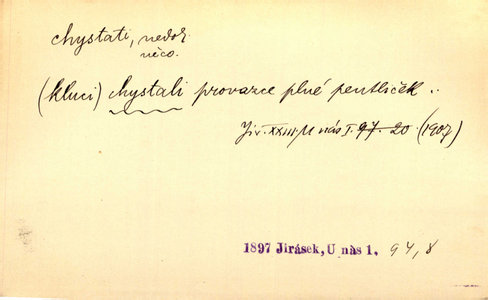 chystati, nedok.
něco.
(kluci) chystali provazce plné pentliček ..
Jir. XXIII. U nás I. 97. 20. (1907)
1897 Jirásek, U nás 1. 94, 8